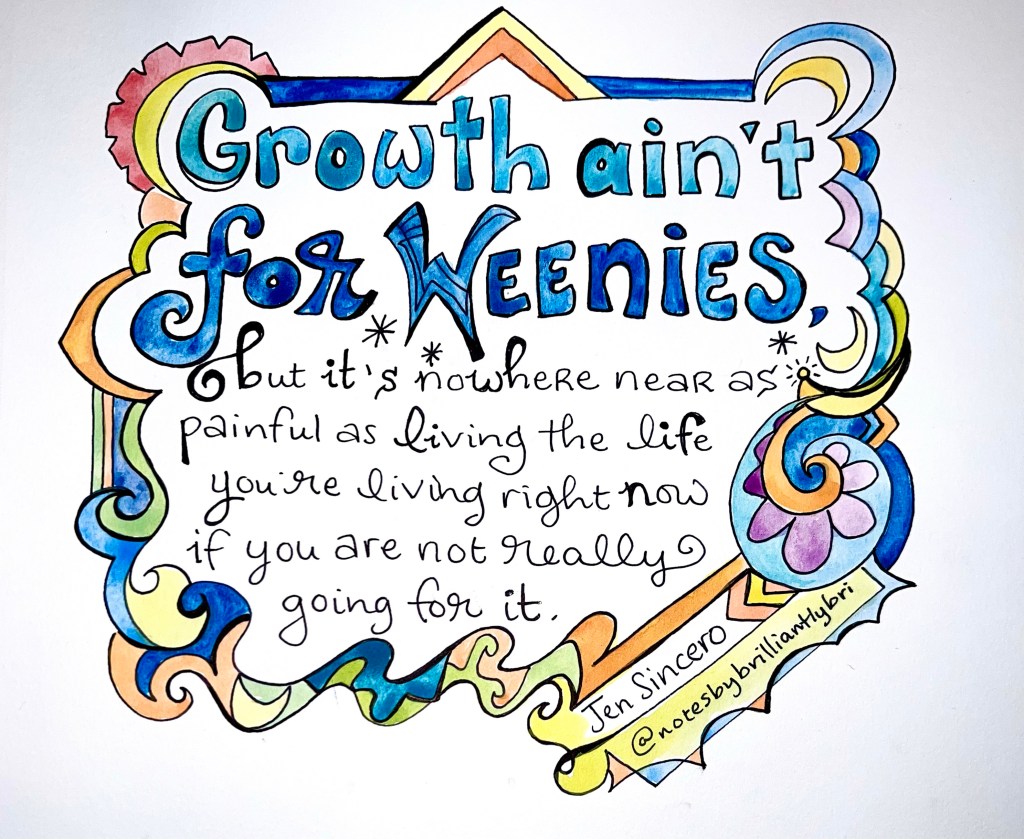 Growth ain't
for WEENIES,
but it's nowhere near as
painful as living the life
you're living right now
if you are not really
going for it.
Jen Sincero
@notesbybrilliantlybri